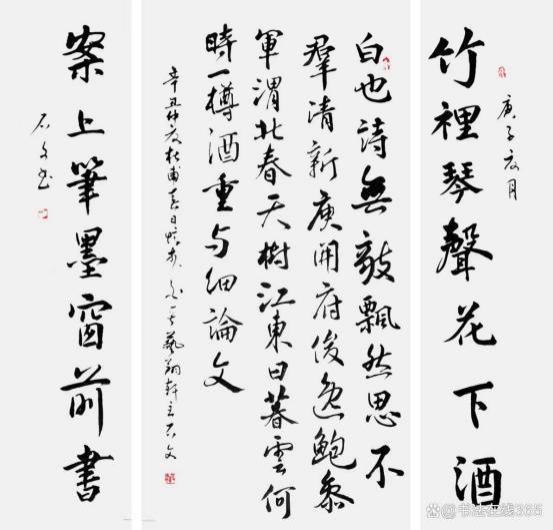 竹裡琴聲花下酒
庚子夏月
白也詩無敵飄然思不
羣清新庾開府俊逸鮑參
軍渭北春天樹江東日暮雲何
時一樽酒重与細論文
辛丑仲夏杜甫春日憶李白一首藝翔軒主石文
案上筆墨窗前書
石文书
@书法在线365